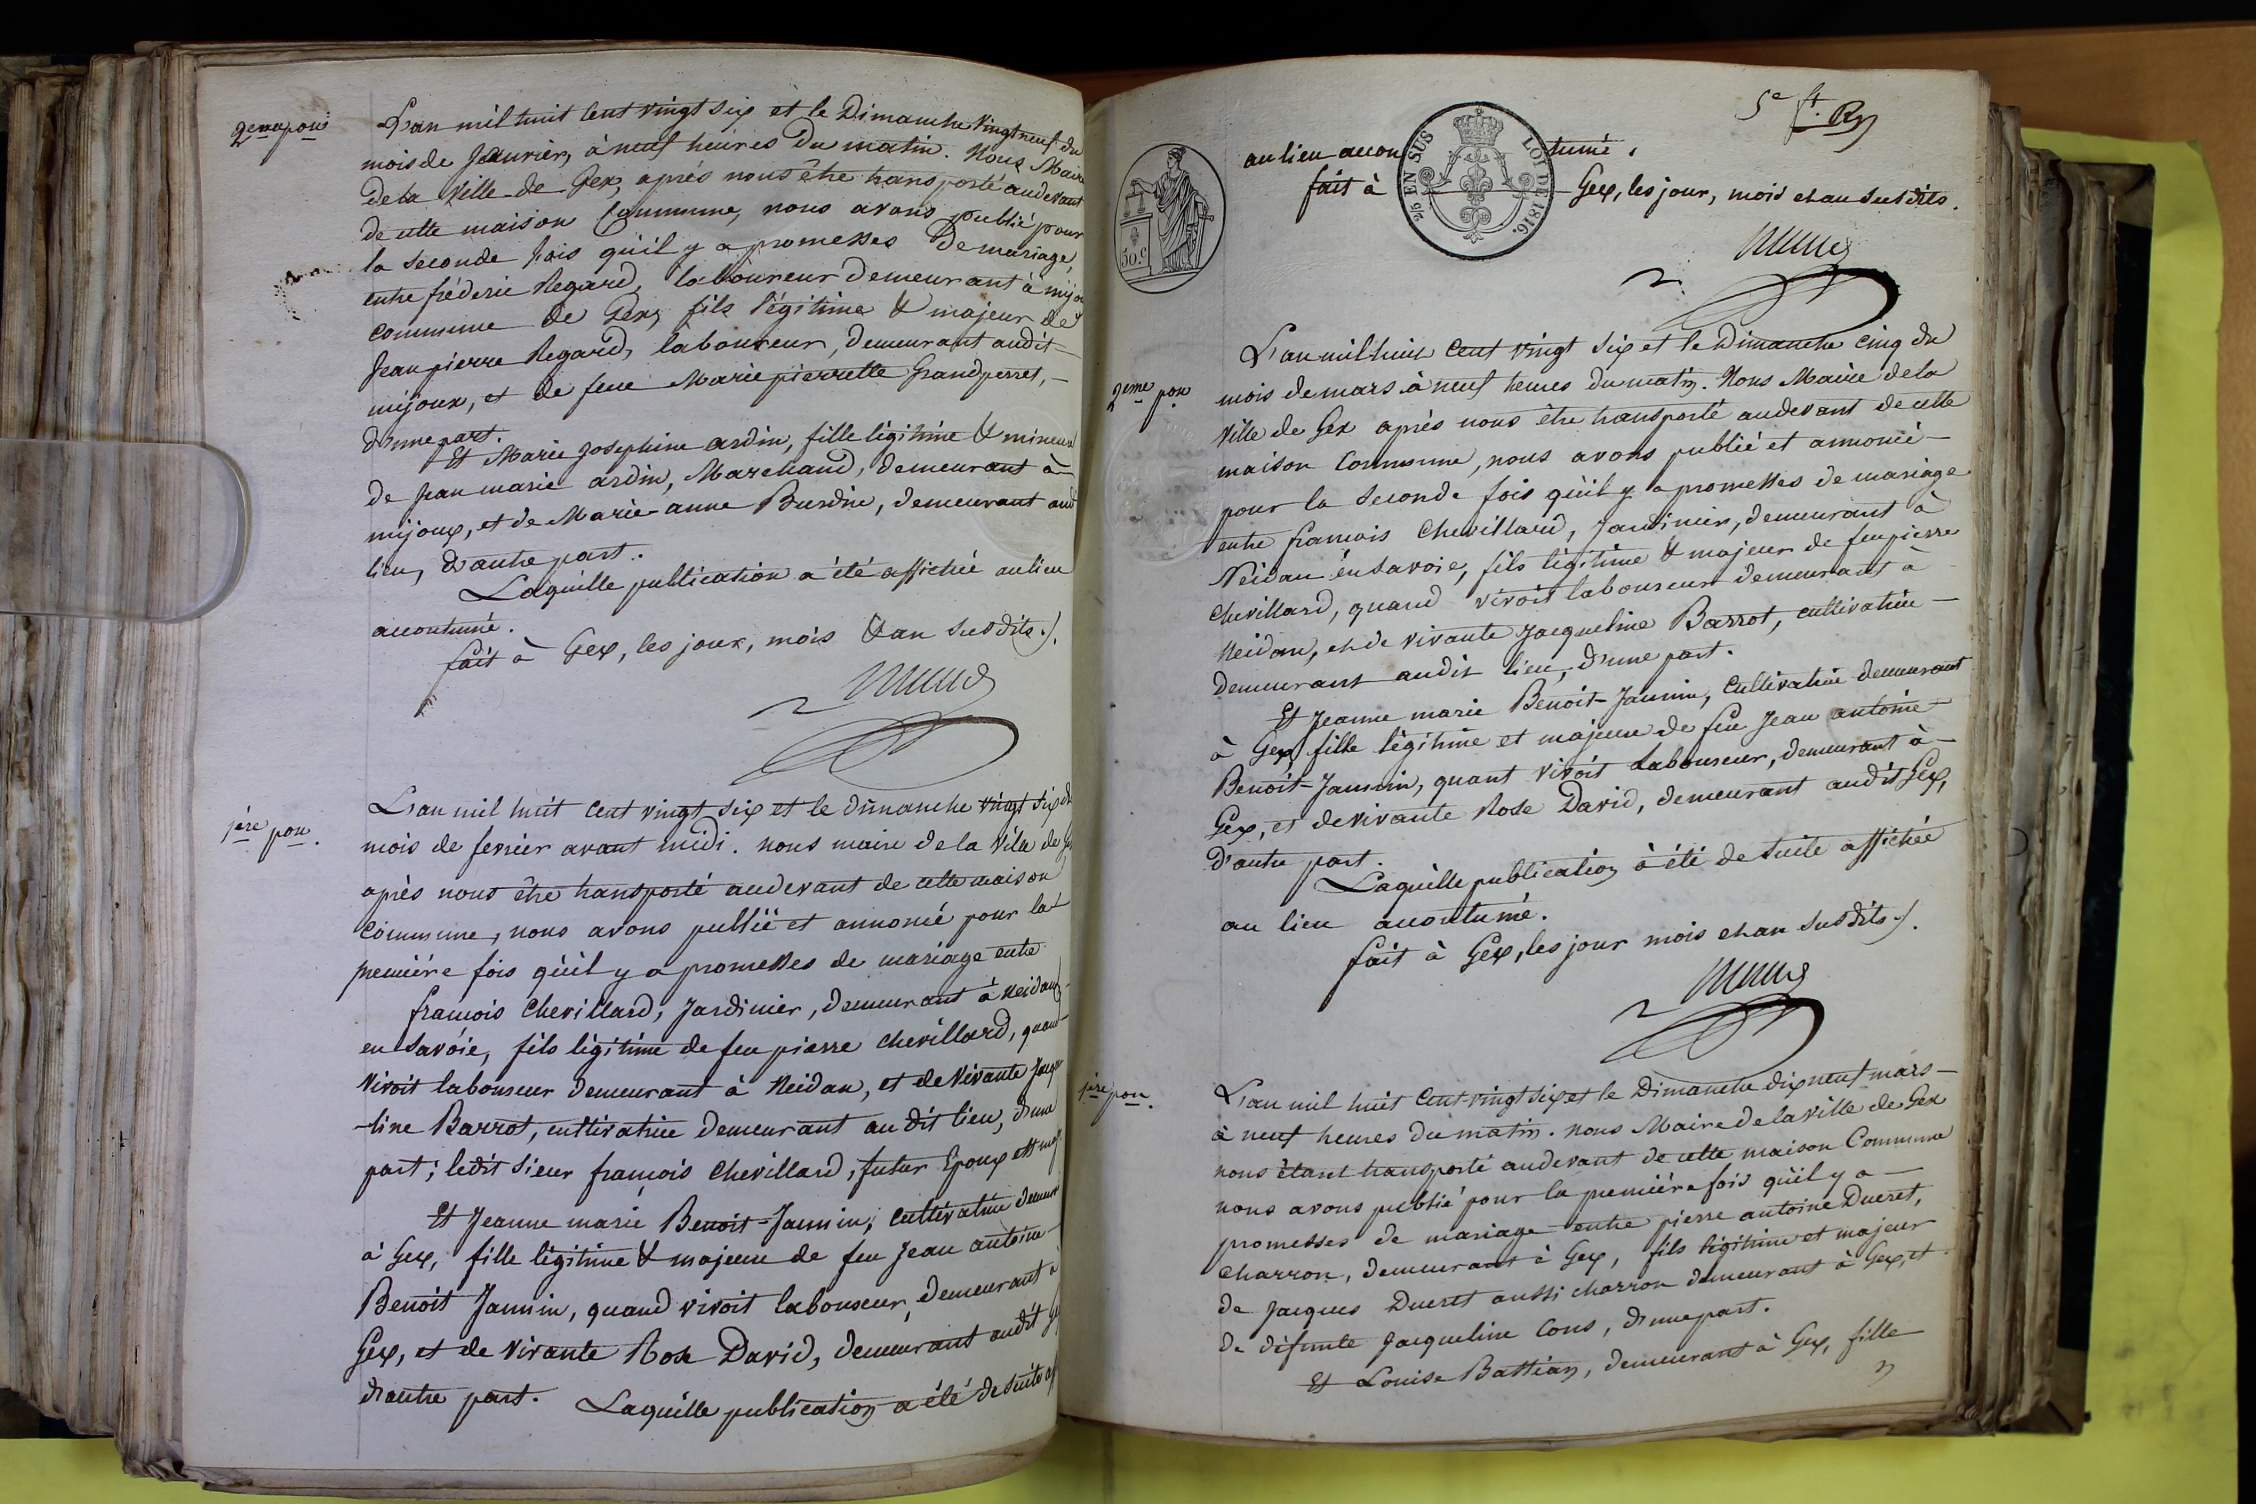 2eme pon
L'an mil huit Cent vingt six et le Dimanche vingt neuf du
mois de Janvier, à neuf heures du matin. Nous Maire
de la Ville de Gex, après nous être transporté au devant
de cette maison Commune, nous avons publié pour
la seconde fois qu'il y a promesses de mariage,
entre fréderic Regard, laboureur demeurant à mijou
commune de Gex, fils légitime & majeur de
Jean pierre Regard, laboureur, demeurant audit
mijoux, et de feue Marie pierrette Grandperret,
d'une part.
Et Marie Josephine ardin, fille légitime & mineure
de Jean marie ardin, Marchand, demeurant à
mijoux, et de Marie-anne Burdin, demeurant aud
lieu, d'autre part.
Laquelle publication a été affichée au lieu
accoutumé.
fait à Gex, les jour, mois & an susdits./.
1ère pon.
L'an mil huit Cent vingt six et le dimanche vingt six du
mois de fevrier avant midi. nous maire de la Ville de Gex
après nous être transporté au devant de cette maison
Commune, nous avons publié et annoncé pour la
première fois qu'il y a promesses de mariage entre
francois Chevillard, Jardinier, demeurant à Neidan
en Savoie, fils légitime de feu pierre Chevillard, quand
vivoit laboureur demeurant à Neidan, et de vivante Jacque
-line Barrot, cultivatrice demeurant au dit lieu, d'une
part; ledit sieur francois Chevillard, futur Epoux est maj
Et Jeanne marie Benoit-Jannin, cultivatrice demeur
à Gex, fille légitime & majeure de feu Jean antoine
Benoit Jannin, quand vivoit laboureur, demeurant à
Gex, et de vivante Rose David, demeurant audit Gex
d'autre part. Laquelle publication a été de suite aff
5e ft. Ry
au lieu accou tumé.
fait à Gex, les jour, mois et an susdits.
3/5 EN SUS LOI DE 1816.
50 c
2eme pon
L'an mil huit Cent vingt six et le Dimanche cinq du
mois de mars à neuf heures du matin. Nous Maire de la
Ville de Gex après nous être transporté au devant de cette
maison Commune, nous avons publié et annoncé
pour la seconde fois qu'il y a promesses de mariage
entre francois Chevillard, Jardinier, demeurant à
Neidan en Savoie, fils légitime & majeur de feu pierre
Chevillard, quand vivoit laboureur demeurant à
Neidan, et de vivante Jacqueline Barrot, cultivatrice
demeurant audit lieu, d'une part.
Et Jeanne marie Benoit-Jannin, Cultivatrice demeurant
à Gex, fille légitime et majeure de feu Jean antoine
Benoit-Jannin, quant vivoit Laboureur, demeurant à
Gex, et de vivante Rose David, demeurant audit Gex,
d'autre part.
Laquelle publication à été de suite affichée
au lieu accoutumé.
fait à Gex, les jour mois et an susdits./.
1ère pon.
L'an mil huit Cent vingt six et le Dimanche dix neuf mars
à neuf heures du matin. nous Maire de la ville de Gex
nous étant transporté au devant de cette maison Commune
nous avons publié pour la première fois qu'il y a
promesses de mariage entre pierre antoine Ducret,
charron, demeurant à Gex, fils légitime et majeur
de Jacques Ducret aussi charron demeurant à Gex, et
de défunte Jacqueline Cons, d'une part.
Et Louise Battian, demeurant à Gex, fille